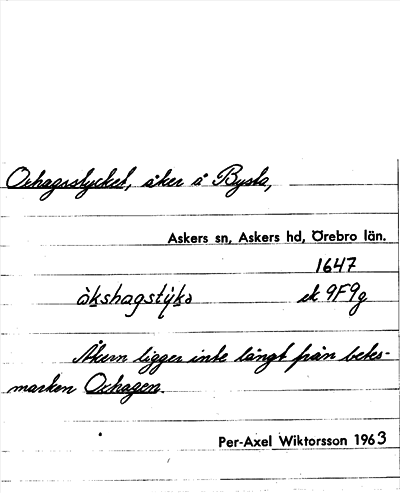 Oxhagsstycket, åker å Bysta,
Askers sn, Askers hd, Örebro län.
1647
òkshagstỳkə ek 9F9g
Åkern ligger inte långt från betes-
marken Oxhagen.
Per-Axel Wiktorsson 1963